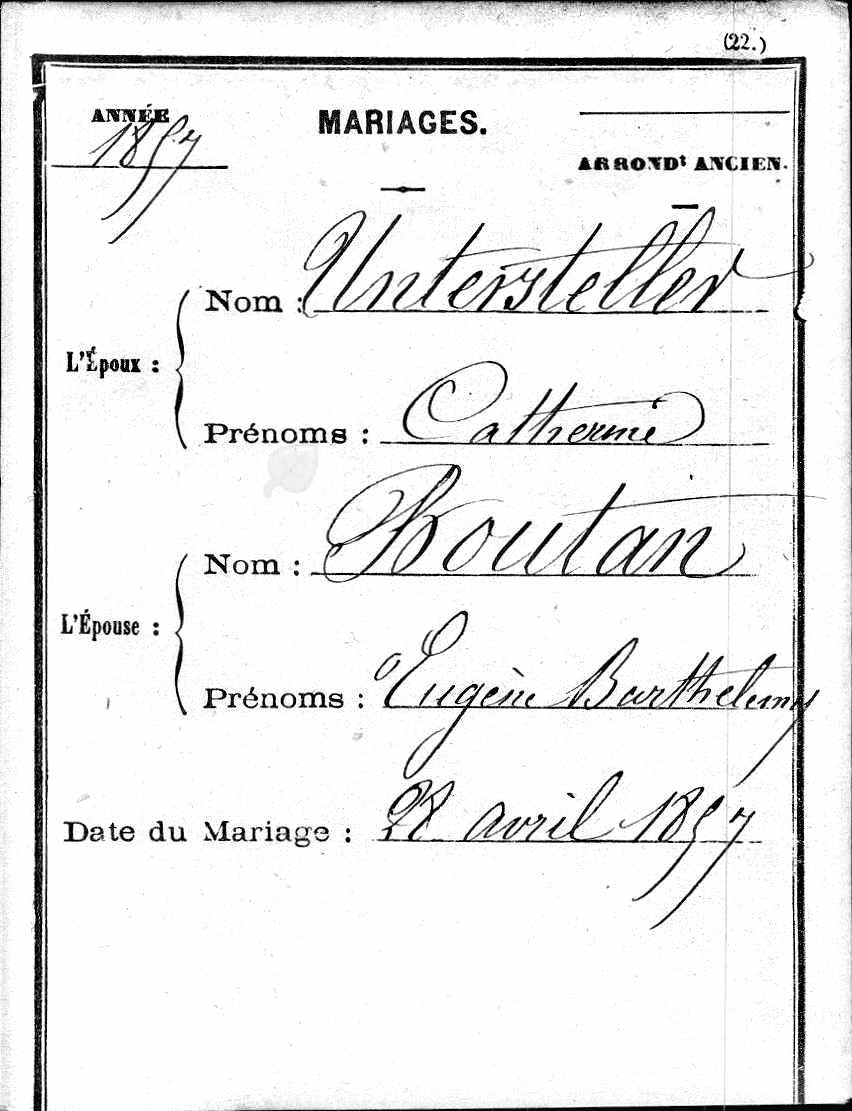 (22.)
ANNÉE
1857
MARIAGES.
ARRONDt ANCIEN.
L'Époux :
Nom : Untersteller
Prénoms : Catherine
L'Épouse :
Nom : Boutan
Prénoms : Eugène Barthelemy
Date du Mariage : 28 avril 1857